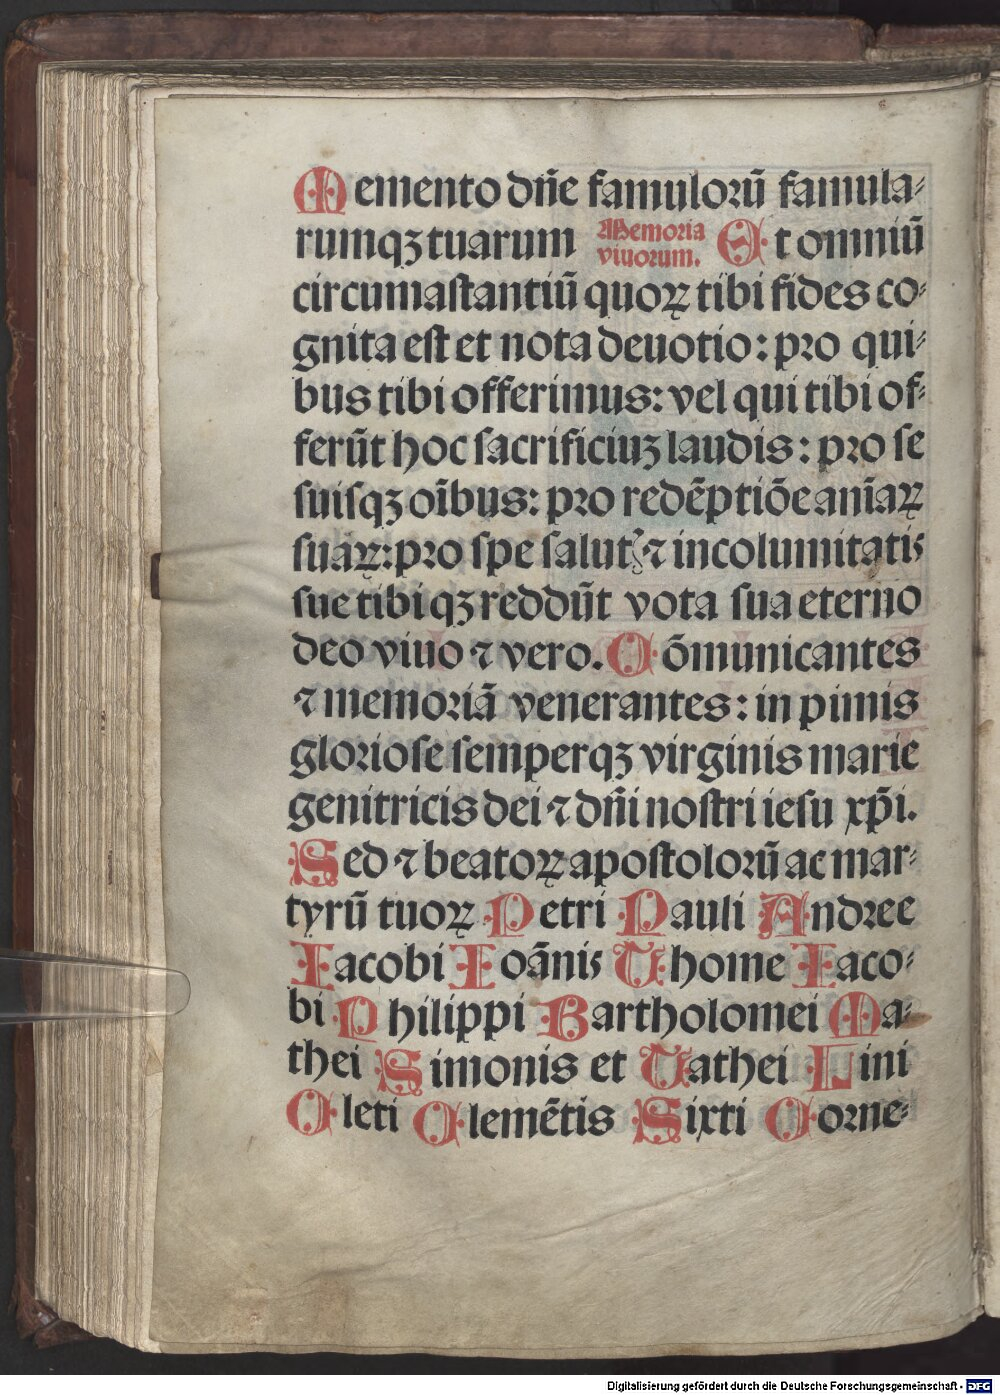 Memento dñe famuloꝝ̃ famula⸗
rumqꝫ tuarum Memoria viuorum. Et omniũ
circumaſtantiũ quoꝝ tibi fides co⸗
gnita eſt et nota deuotio: pro qui⸗
bus tibi offerimus: vel qui tibi of⸗
ferũt hoc ſacrificiuꝫ laudis: pro ſe
ſuiſqꝫ oĩbus: pro redẽptiõe anĩaꝝ
ſuaꝝ: pro ſpe ſalutꝭ ⁊ incolumitatis
ſue tibi qꝫ reddũt vota ſua eterno
deo viuo ⁊ vero. Cõmunicantes
⁊ memoriã venerantes: in pimis
glorioſe ſemperqꝫ virginis marie
genitricis dei ⁊ dñi noſtri ieſu xp̃i.
Sed ⁊ beatoꝝ apoſtolorũ ac mar⸗
tyrũ tuoꝝ Petri Pauli Andree
Iacobi Ioãnis Thome Iaco⸗
bi Philippi Bartholomei Ma⸗
thei Simonis et Tathei Lini
Cleti Clemẽtis Sixti Corne⸗
Digitalisierung gefördert durch die Deutsche Forschungsgemeinschaft - DFG